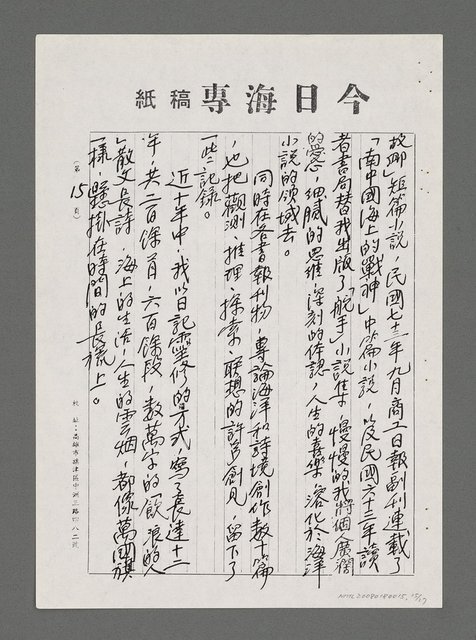 今日海專稿紙
故鄉」短篇小說,民國七十三年九月商工日報副刊連載了
「南中國海上的戰神」中篇小說,以及民國六十三年讀
者書局替我出版了「舵手」小說集,慢慢的我將個人廣濶
的愛心,細膩的思維,深刻的体認,人生的喜樂,溶化於海洋
小說的領域去。
同時在各書報刊物,專論海洋和詩境創作數十篇
,也把臆測、推理、探索、聯想的許多創見,留下了
一些記錄。
近十年中,我以日記靈修的方式,寫了長達十二
年,共二百餘首,六百餘段,數萬字的「飲浪的人
」散文長詩,海上的生活,人生的雲烟,都像萬國旗
一樣,懸掛在時間的長檣上。
(第 15 頁)
校 址:高雄市旗津區中洲三路四八二號
NMTL20080180015, 15/17